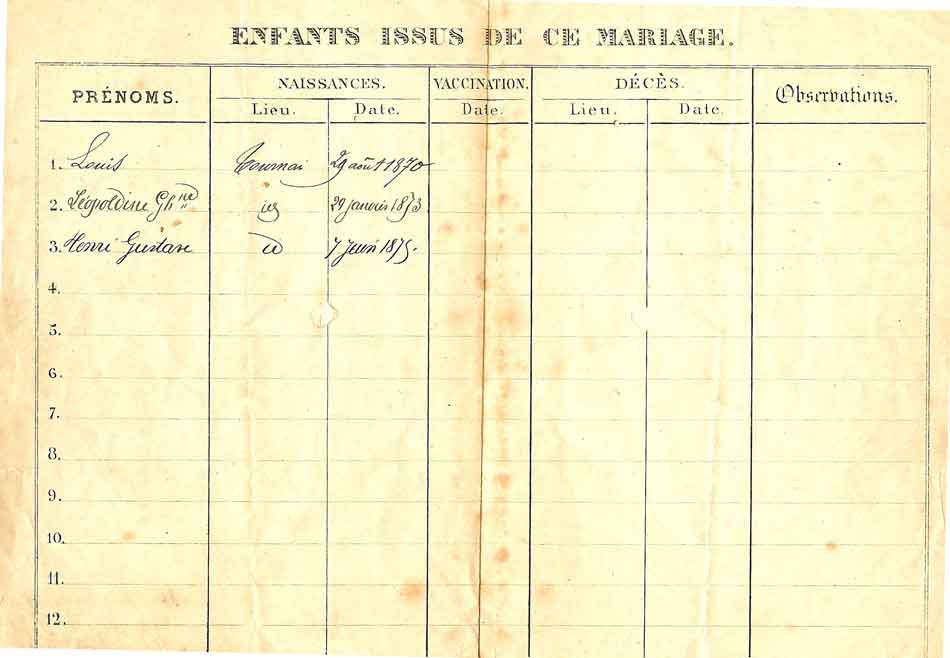 ENFANTS ISSUS DE CE MARIAGE.
PRÉNOMS. NAISSANCES. VACCINATION. DÉCÈS. Observations.
Lieu. Date. Date. Lieu. Date.
1. Louis Tournai 29 août 1870
2. Léopoldine Gh.ne 29 janvier 1873
3. Henri Gustave d 7 Juin 1875.
4.
5.
6.
7.
8.
9.
10.
11.
12.